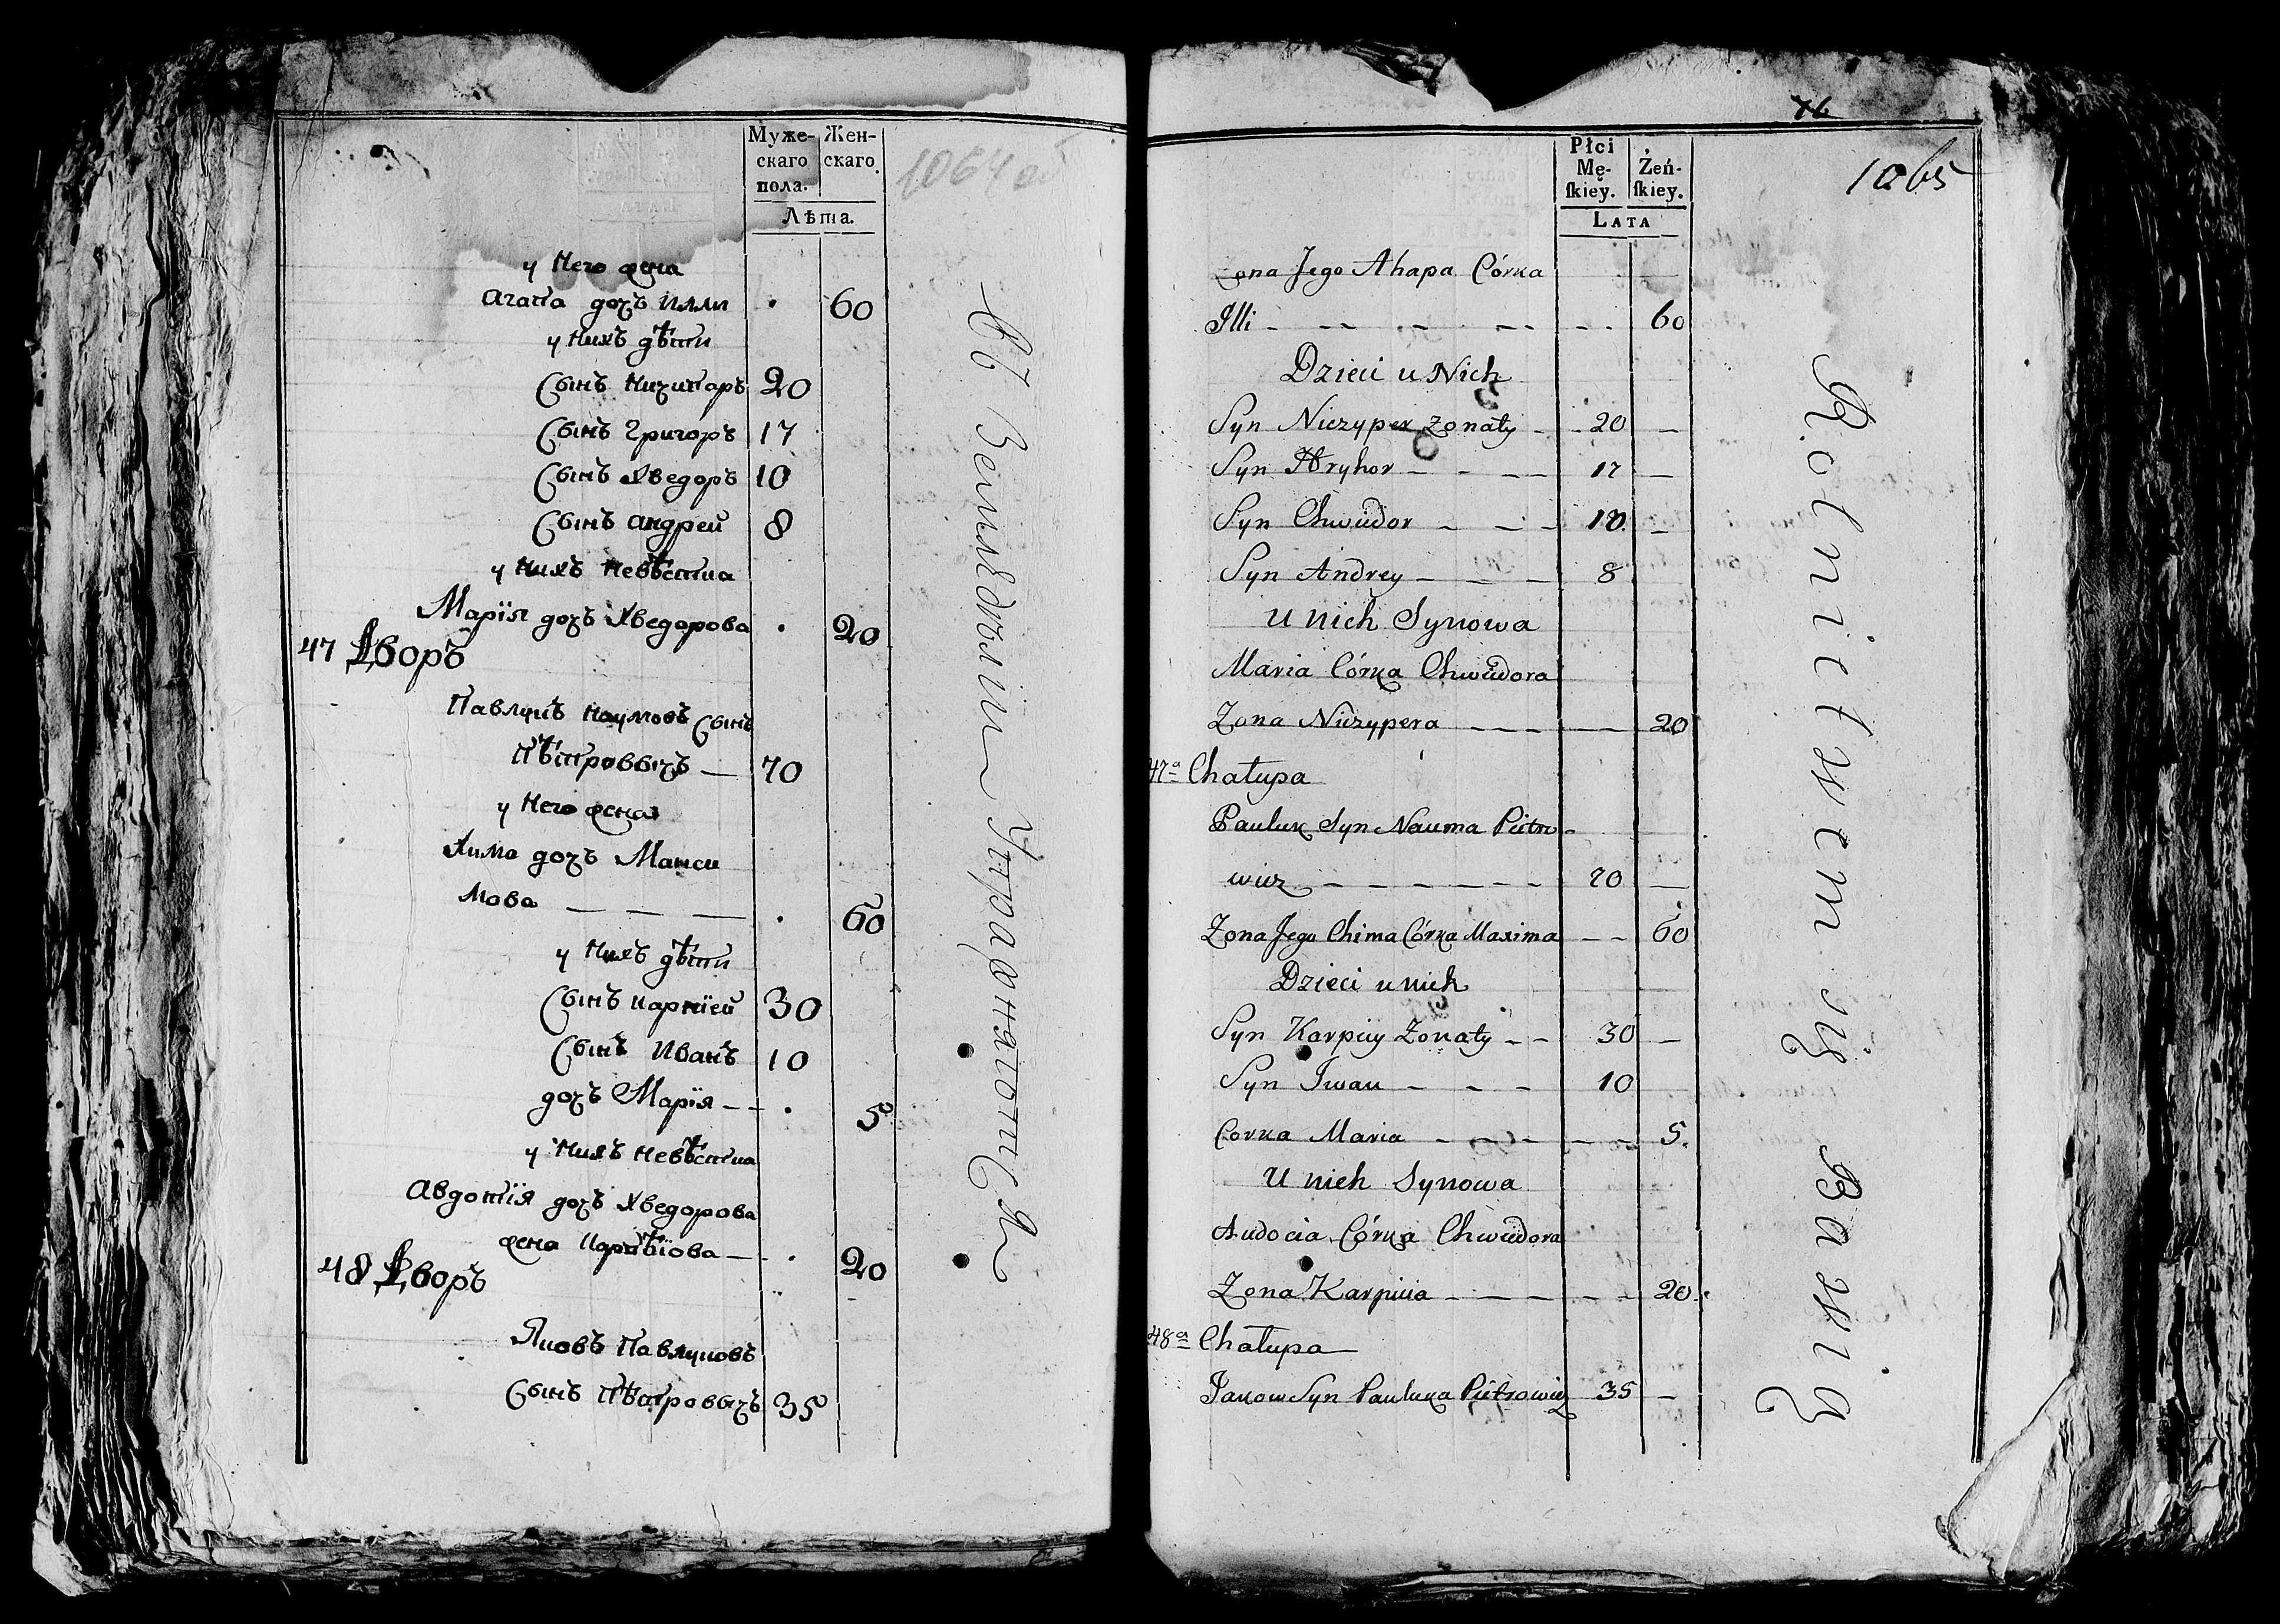 Муже-
скаго
пола.
Жен-
скаго.
Лѣта.
1064 об
у него жена
Агапа дочъ Илли . 60
у нихъ дѣти
Сынъ Ничипаръ 20
Сынъ Григоръ 17
Сынъ Хведоръ 10
Сынъ Андрей 8
у нихъ невѣстка
Марїя дочъ Хведорова . 20
47 Дворъ
Павлукъ Наумовъ Сынъ
Пѣтровычъ — 70
у него жена
Хима дочъ Макси
мова — — — . 60
у нихъ дѣти
Сынъ Карпїей 30
Сынъ Иванъ 10
дочъ Марїя — . 5
у нихъ невѣстка
Авдотїя дочъ Хведорова
жена Карпѣїова — . 20
48 Дворъ
Яковъ Павлуковъ
Сынъ Пѣтровычъ 35
Въ Земледѣлiи Упражняются
76
1065
Płci
Mę-
ſkiey.
Żeń-
ſkiey.
LATA
Zona Jego Ahapa Córka
Illi - - - - - - - 60
Dzieci u Nich
Syn Niczyper Zonaty - - 20 —
Syn Hryhor - - - - 17 —
Syn Chwiedor - - - 10 —
Syn Andrey - - - 8
U nich Synowa
Maria Córka Chwiedora
Zona Niczypera - - - - 20
47a Chałupa
Pauluk Syn Nauma Pietro-
wicz - - - - - - 70 —
Zona Jego Chima Córka Maxima - - 60
Dzieci u nich
Syn Karpiey Zonaty - - 30 —
Syn Iwan - - - 10
Corka Maria - - - - - - 5.
U nich Synowa
Audocia Córka Chwiedora
Zona Karpieia - - - - - - 20.
48a Chałupa
Jakow Syn Pauluka Pietrowicz 35 —
Rolnictwem się Bawią